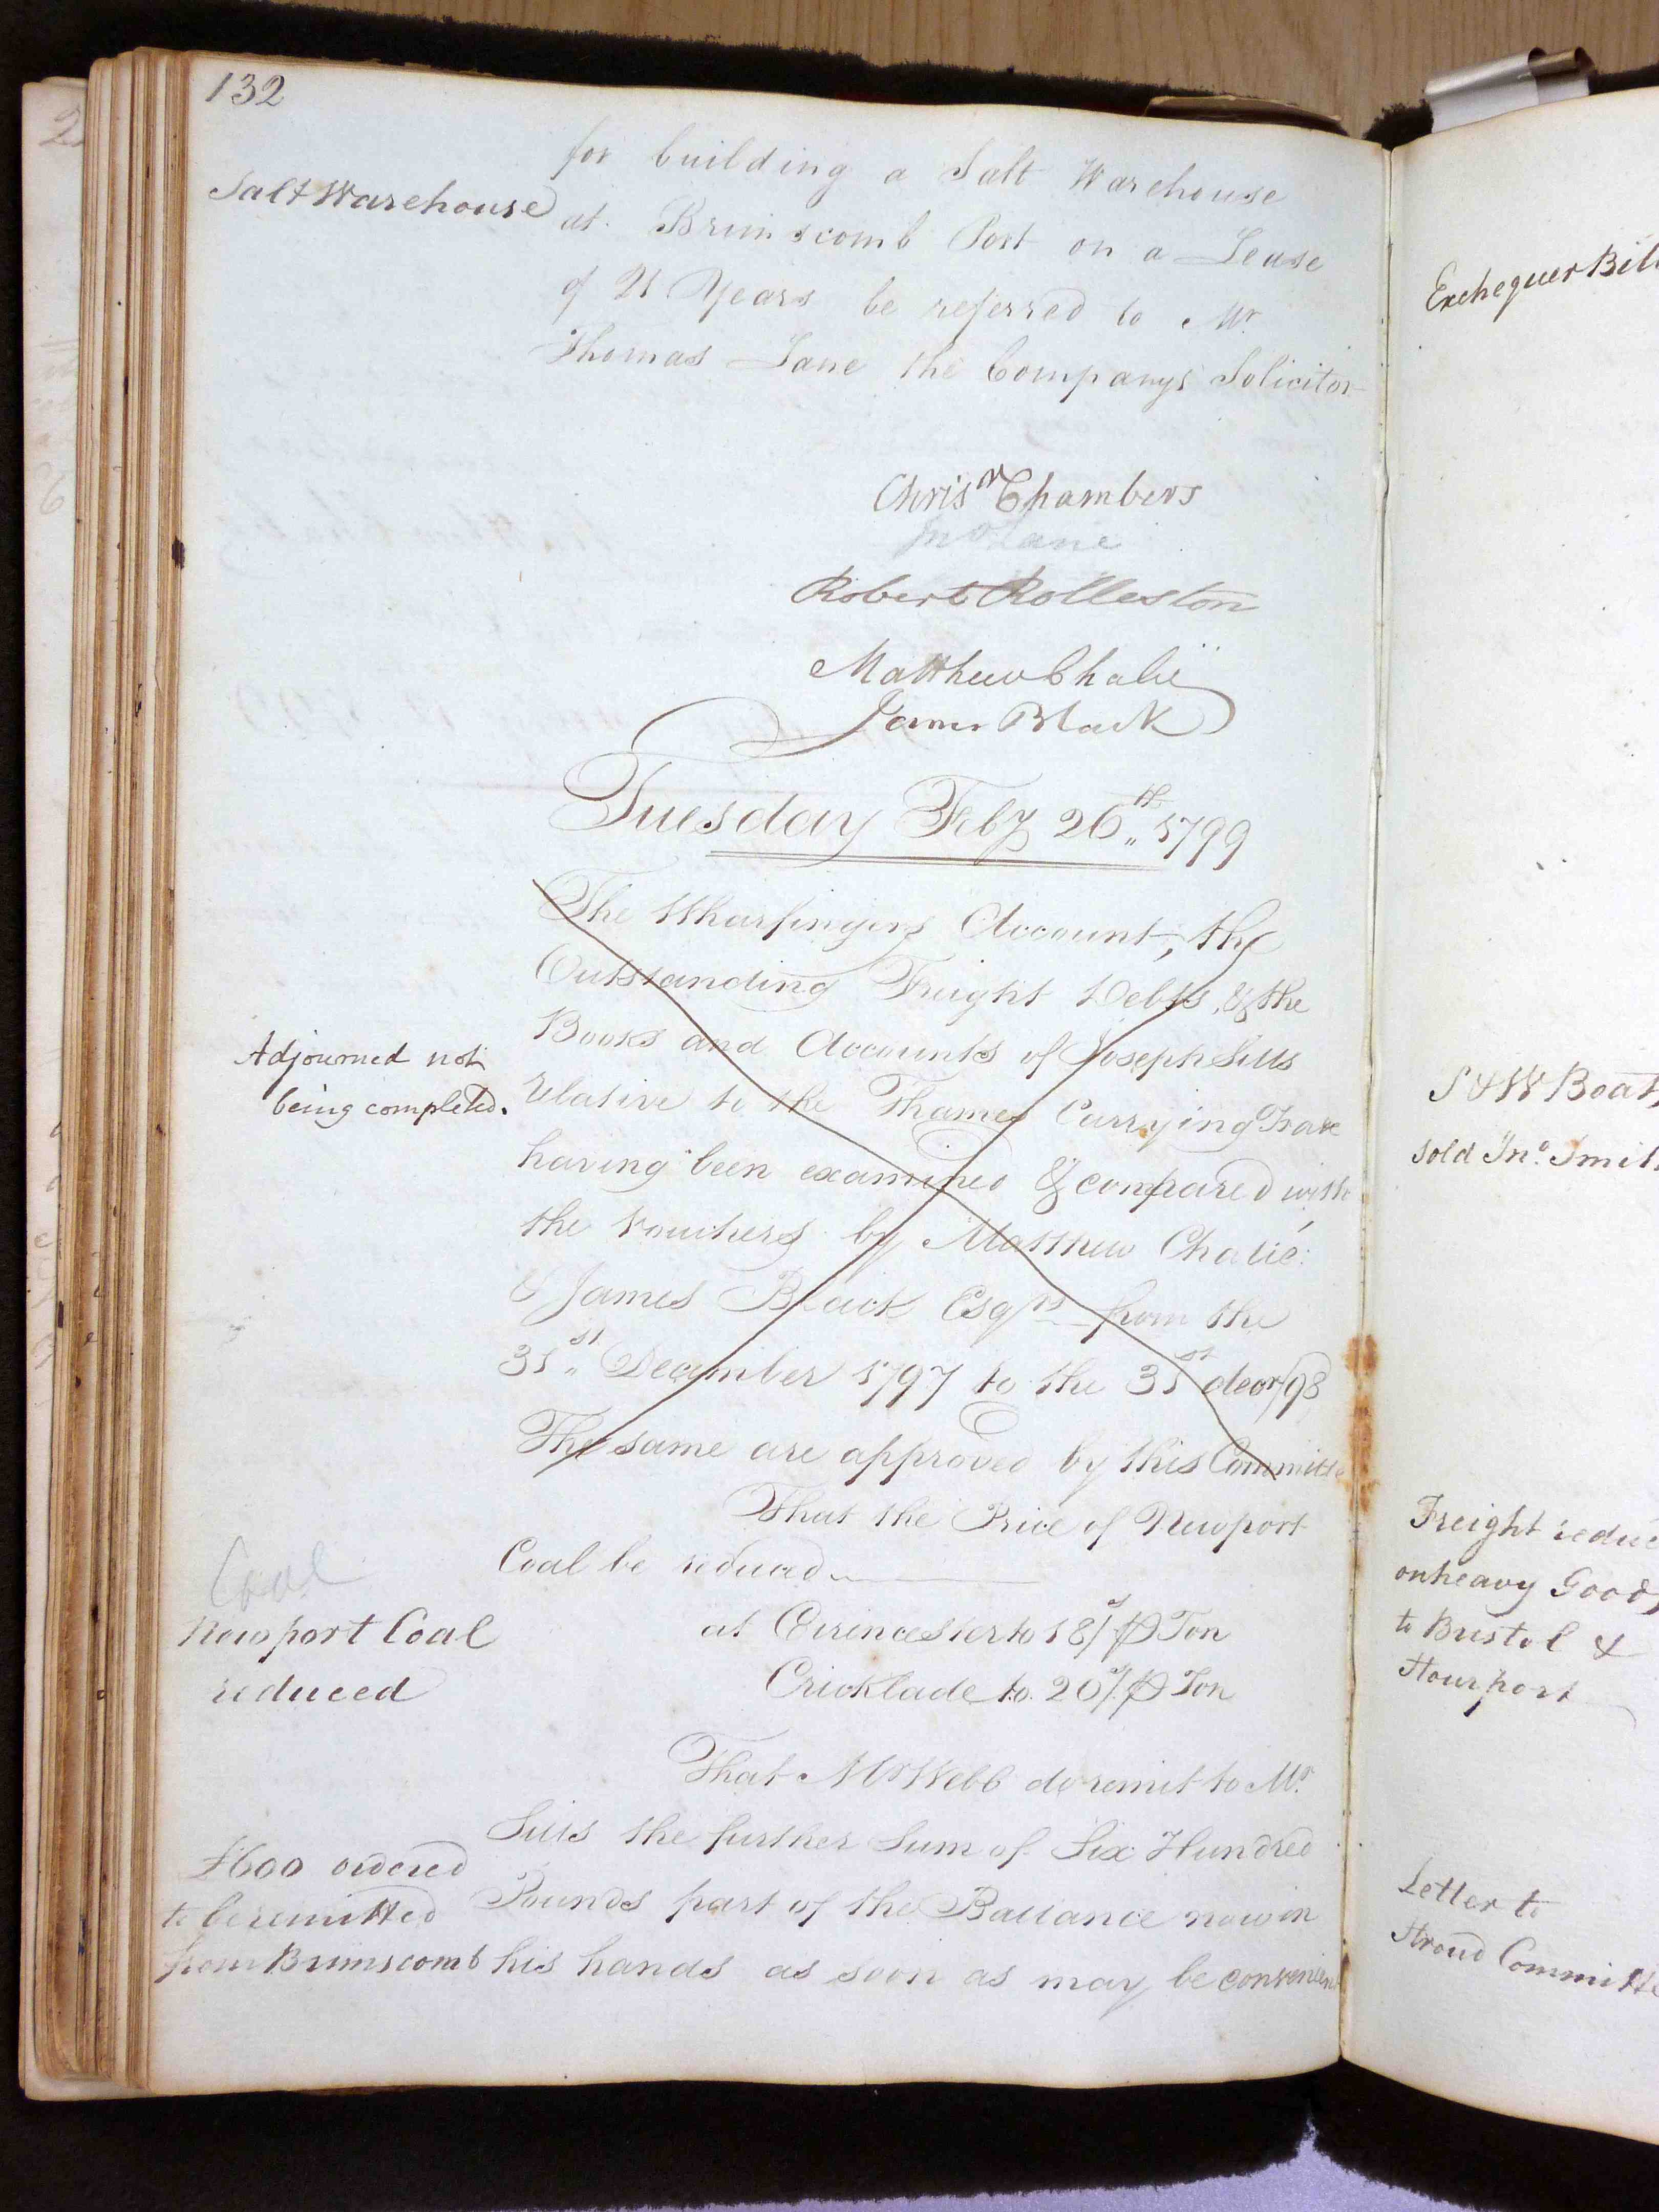 132
Salt Warehouse
for building a Salt Warehouse
at Brimscomb Port on a Lease
of 21 Years be referred to Mr.
Thomas Lane the Companys Solicitor
Chrisr Chambers
Jno Lane
Robert Rolleston
Matthew Chalié
James Black
Tuesday Feby 26th 1799
The Wharfingers Account, the
Outstanding Freight Debts, & the
Books and Accounts of Joseph Sills
Adjourned not
being completed.
relative to the Thames Carrying Trade
having been examined & compared with
the Vouchers by Matthew Chalié
& James Black Esqrs from the
31st December 1797 to the 31st decr/98
The same are approved by this Committee
That the Price of Newport
Coal be reduced
Coal
Newport Coal
reduced
at Cirencester to 18s/ ⅌ Ton
Cricklade to 20s/ ⅌ Ton
That Mr Webb do remit to Mr.
Sills the further Sum of Six Hundred
£600 ordered
to be remitted
from Brimscomb
Pounds part of the Ballance now in
his hands as soon as may be convenient
Exchequer Bil
S & W Boat,
sold Jno. Smit
Freight reduc
on heavy Goods
to Bristol &
Stourport
Letter to
Stroud Committe